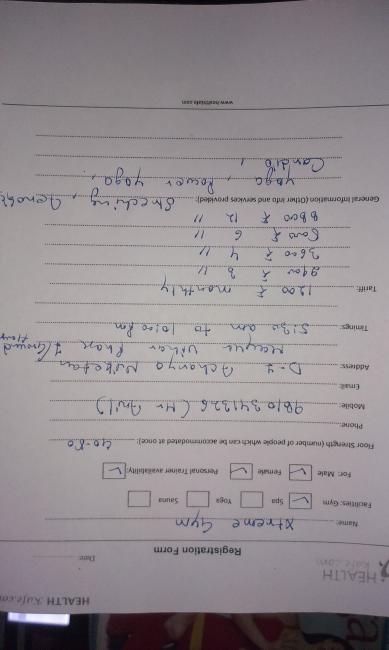 HEALTH
HEALTH
Registration Form
Date:
Name: Xtreme Gym
Facilities: Gym Spa Yoga Sauna
For: Male Female Personal Trainer availability:
Floor Strength (number of people which can be accommodated at once): 40-50
Phone:
Mobile: 9810341326 (Mr Anil)
Email:
Address: D-2 Acharya Niketan
Mayur Vihar Phase 1 (Ground
Timings: 5:30 am to 10:00 Pm
Tariff: 1200 ₹ monthly
₹ 3 "
3600 ₹ 4 "
₹ 6 "
8800 ₹ 12 "
General Information (Other) info and services provided): Streching,
yoga, Power yoga,
Cardio,
www.healthkafe.com